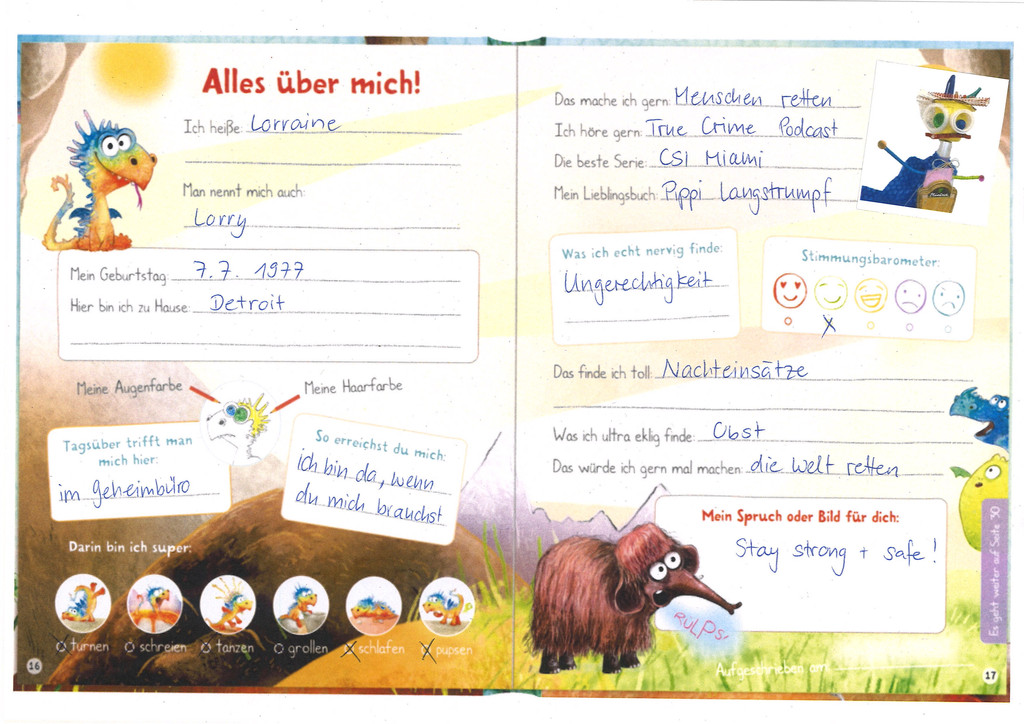 Alles über mich!
Ich heiße: Lorraine
Man nennt mich auch:
Lorry
Mein Geburtstag: 7.7. 1977
Hier bin ich zu Hause: Detroit
Meine Augenfarbe
Meine Haarfarbe
Tagsüber trifft man
mich hier:
im Geheimbüro
So erreichst du mich:
ich bin da, wenn
du mich brauchst
Darin bin ich super:
turnen
schreien
tanzen
grollen
schlafen
pupsen
16
Das mache ich gern: Menschen retten
Ich höre gern: True Crime Podcast
Die beste Serie: CSI Miami
Mein Lieblingsbuch: Pippi Langstrumpf
Was ich echt nervig finde:
Ungerechtigkeit
Stimmungsbarometer:
Das finde ich toll: Nachteinsätze
Was ich ultra eklig finde: Obst
Das würde ich gern mal machen: die Welt retten
Mein Spruch oder Bild für dich:
Stay strong + safe!
RULPS!
Es geht weiter auf Seite 30
Aufgeschrieben am:
17